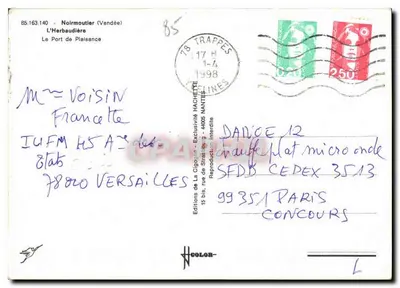 85.163.140 - Noirmoutier (Vendée)
L'Herbaudière
Le Port de Plaisance
85
78 TRAPPES
17 H
1-4
1998
YVELINES
2,50
Mme VOISIN
Francette
IUFM 45 Ave des
Etats
78000 VERSAILLES
Editions de La Cigogne - Exclusivité HACHETTE
15 bis, rue de - 44005 NANTES
Reproduction interdite
DANCE 12
neuf plat micro onde
SFDB CEDEX 3513
99351 PARIS
CONCOURS
L
COLOR